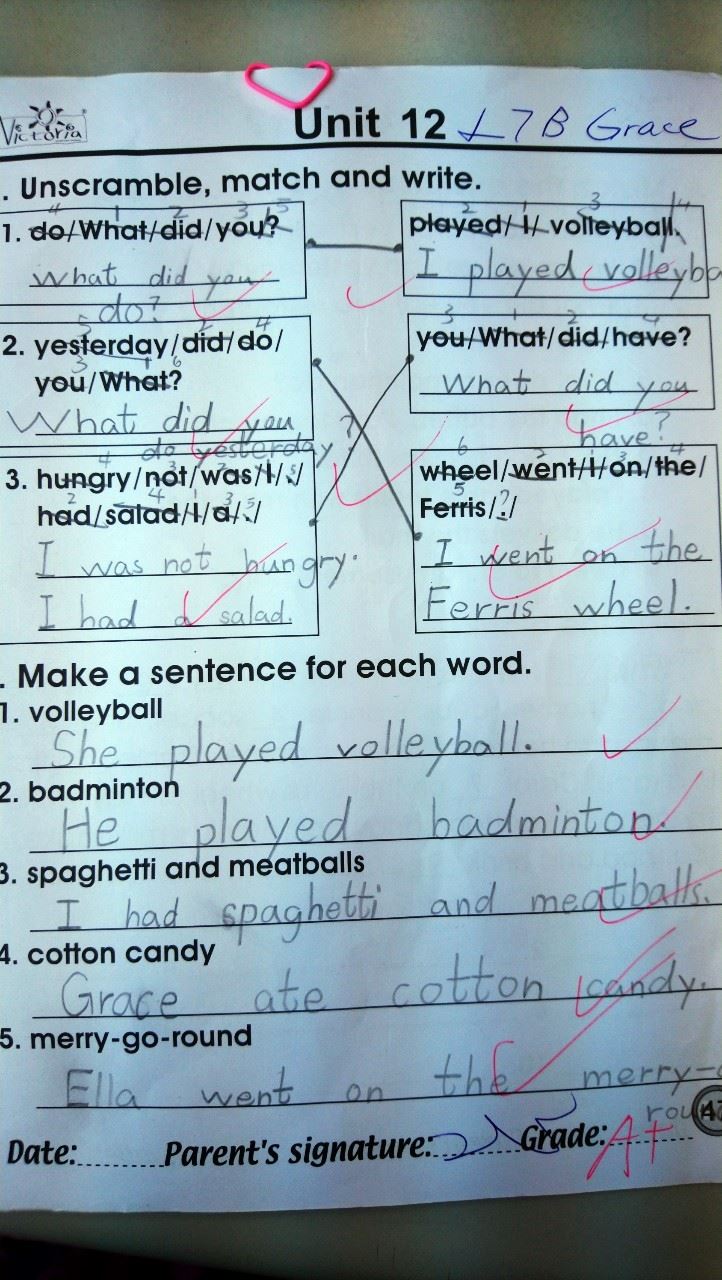 Victoria
Unit 12 L7B Grace
. Unscramble, match and write.
4 1 2 3 5
1. do/What/did/you?
What did you
do?
2 1 3 4
played/I/volleyball.
I played volleyba
5 2 4
2. yesterday/did/do/
3 1 6
you/What?
What did you
do yesterday?
3 1 2 4
you/What/did/have?
What did you
have?
4 3 2 1 5
3. hungry/not/was/I/./
2 4 1 3 5
had/salad/I/a/./
I was not hungry.
I had a salad.
6 2 1 3 4
wheel/went/I/on/the/
5
Ferris/./
I went on the
Ferris wheel.
. Make a sentence for each word.
1. volleyball
She played volleyball.
2. badminton
He played badminton.
3. spaghetti and meatballs
I had spaghetti and meatballs.
4. cotton candy
Grace ate cotton candy.
5. merry-go-round
Ella went on the merry-
rou
Date:........Parent's signature:........Grade: A+